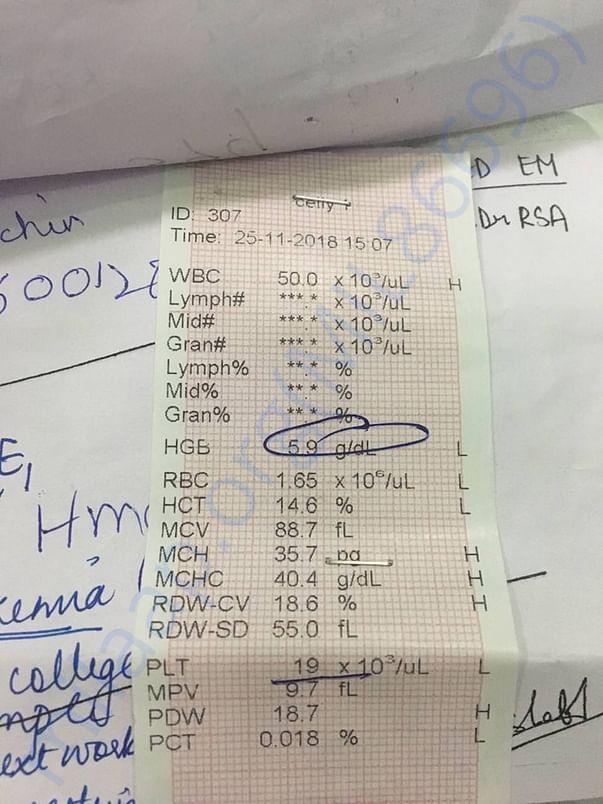 ED EM
Dr RSA
chin
ID: 307
Time: 25-11-2018 15:07
WBC 50.0 x 10³/uL H
Lymph# ***.* x 10³/uL
Mid# ***.* x 10³/uL
Gran# ***.* x 10³/uL
Lymph% **.* %
Mid% **.* %
Gran% **.* %
HGB 5.9 g/dL L
RBC 1.65 x 10⁶/uL L
HCT 14.6 % L
MCV 88.7 fL
MCH 35.7 pg H
MCHC 40.4 g/dL H
RDW-CV 18.6 % H
RDW-SD 55.0 fL
PLT 19 x 10³/uL L
MPV 9.7 fL
PDW 18.7 H
PCT 0.018 % L
college
work